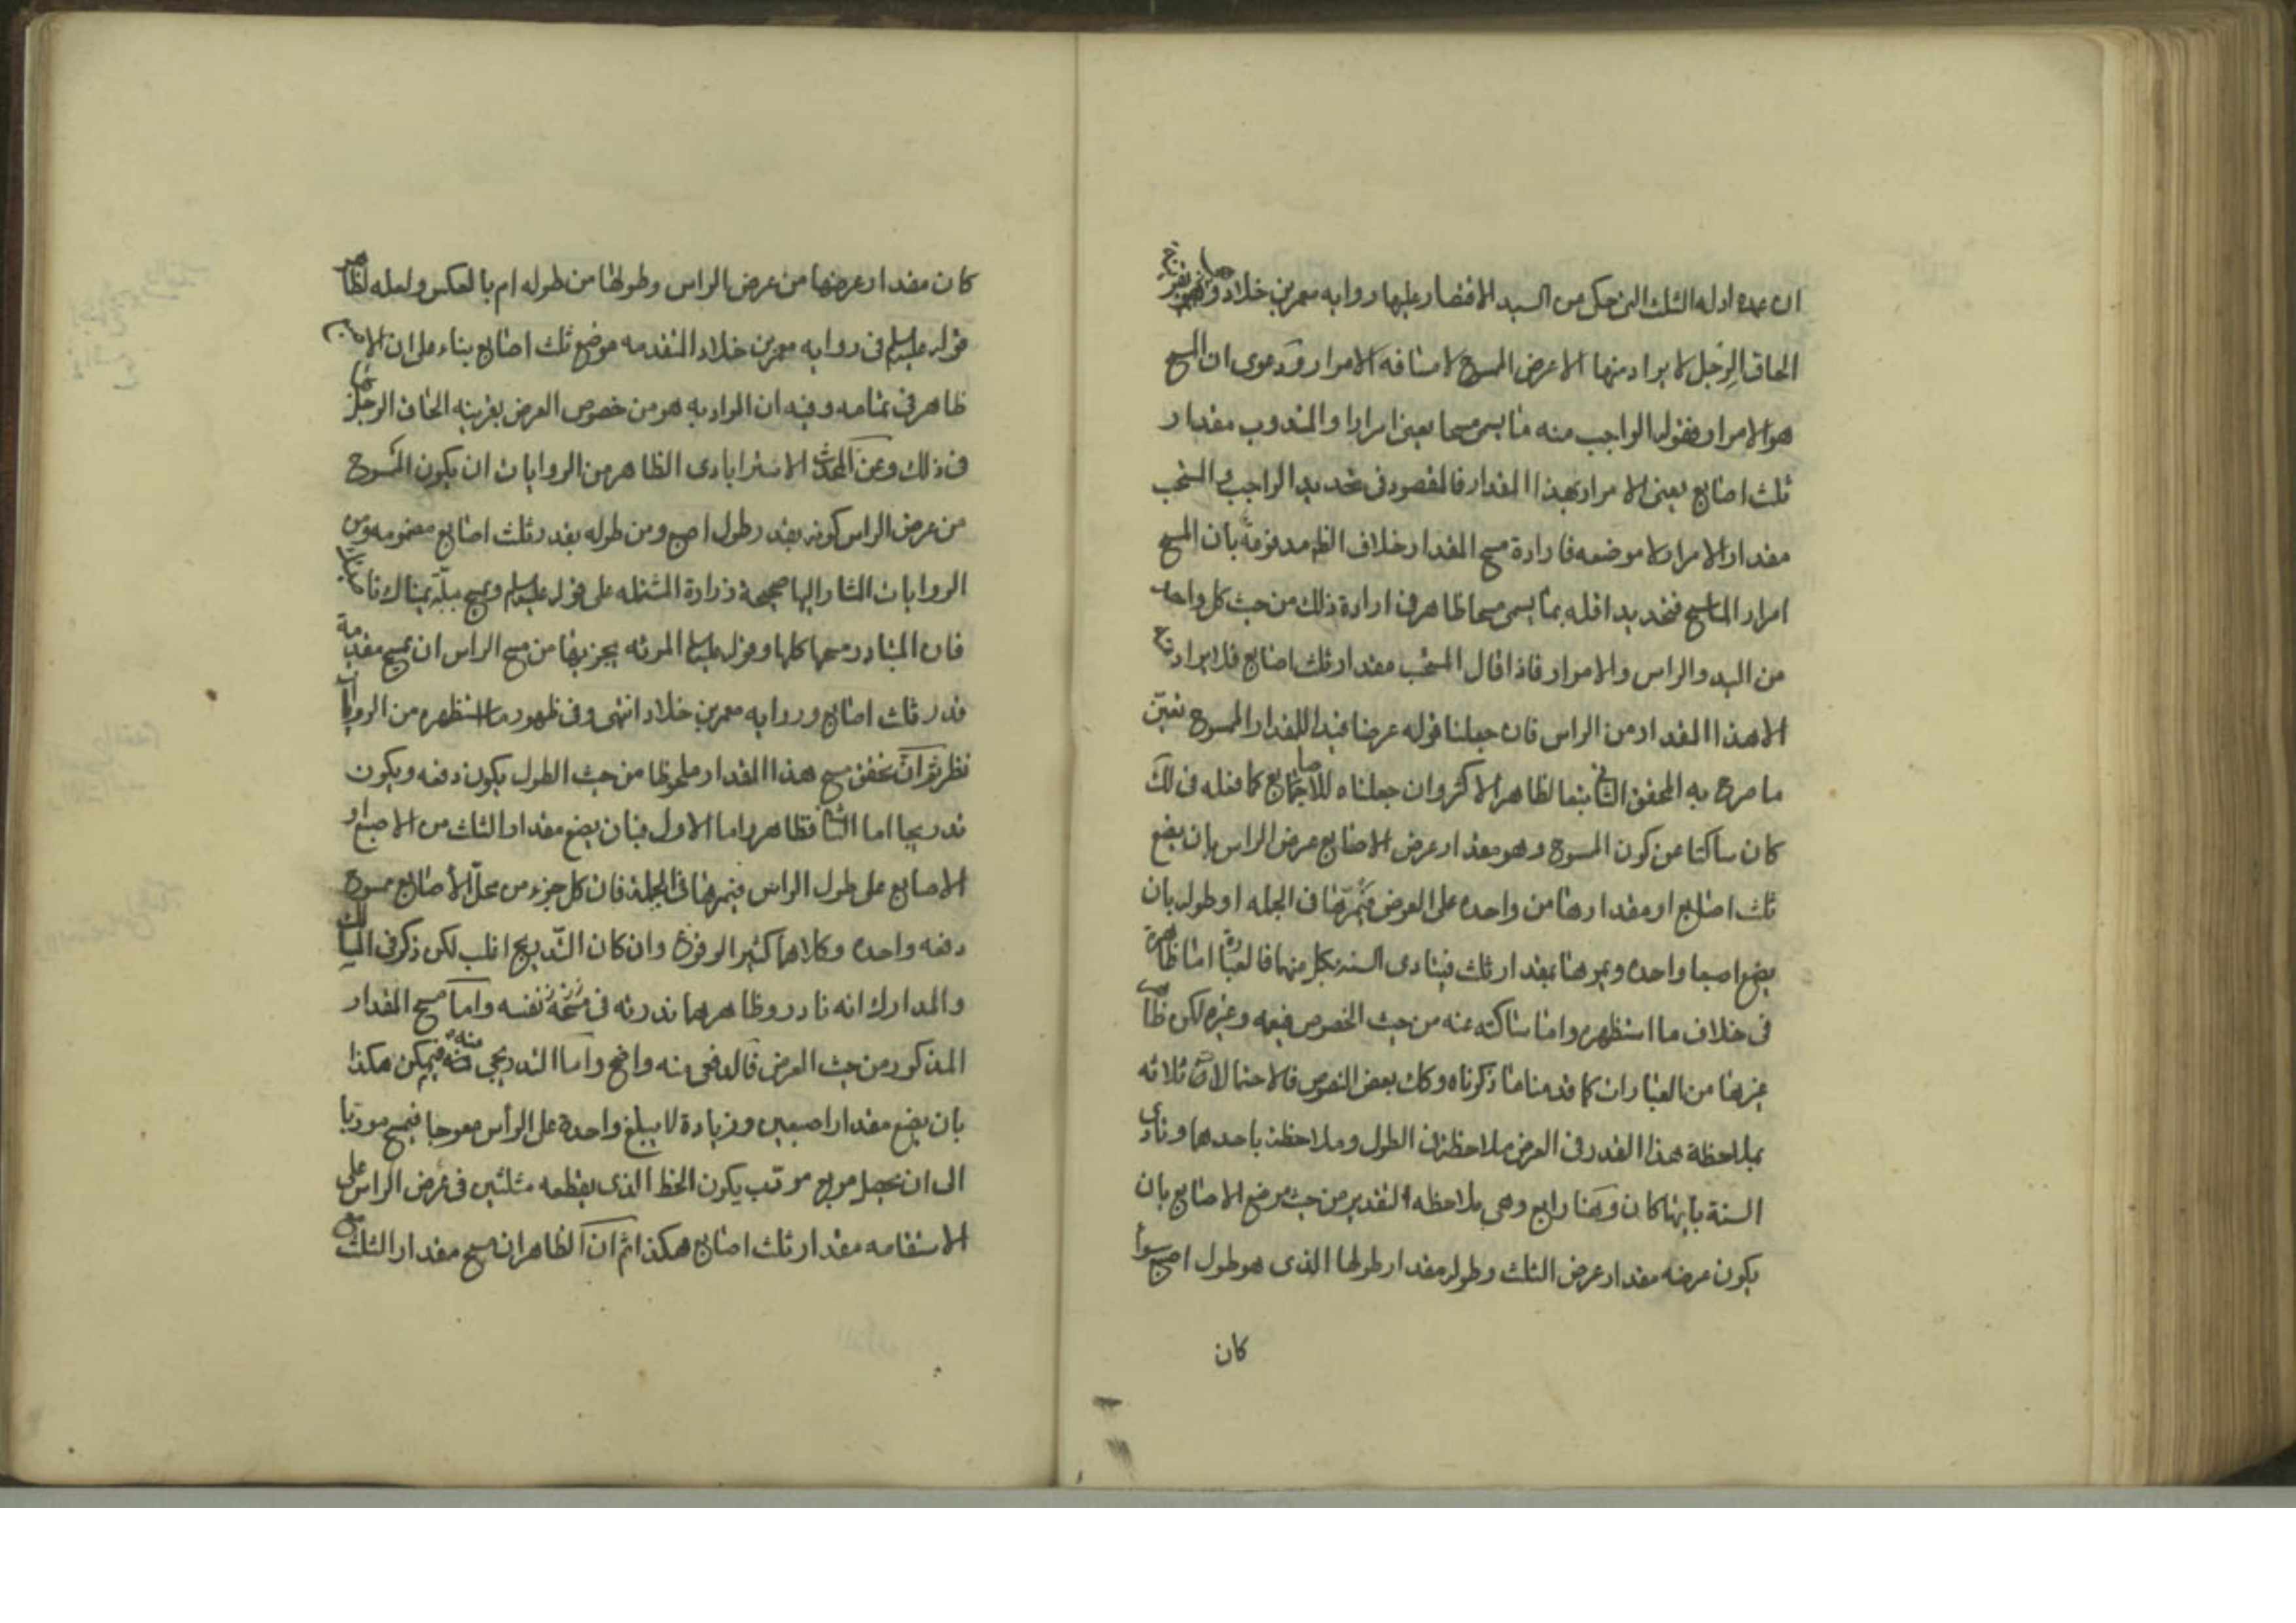 ان عمده ادله الثلث التى حكى من السيد الاقتصار عليها روايه معمر بن خلاد وهى بقرينة
الحاق الرجل لا يراد منها الا عرض الممسوح لا مسافه الامرار ودعوى ان المسح
هو الامرار فقوله الواجب منه ما يسمى مسحا يعنى امرارا والمندوب مقدار
ثلث اصابع يعنى الامرار بهذا المقدار فالمقصود فى تحديد الواجب والمستحب
مقدار الامرار لا موضعه فارادة مسح المقدار خلاف الظ مدفوعة بان المسح
امرار الماسح فتحديد اقله بما يسمى مسحا ظاهر فى ارادة ذلك من حيث كل واحد
من اليد والراس والامرار فاذا قال المستحب مقدار ثلث اصابع فلا يراد ح
الا هذا المقدار من الراس فان جعلنا قوله عرضا قيدا للمقدار الممسوح تعين
ما صرح به المحقق الثانى تبعا لظاهر الاكثر وان جعلناه للاصابع كما فعله فى لك
كان ساكتا عن كون الممسوح وهو مقدار عرض الاصابع عرض الراس بان يضع
ثلث اصابع او مقدارها من واحده على العرض فيمرها فى الجمله او طوله بان
يضع اصبعا واحده ويمرها بمقدار ثلث فيتادى السنه بكل منها فالعبارة اما ظاهرة
فى خلاف ما استظهره واما ساكته عنه من حيث الخصوص فيعمه وغيره لكن ظاهر
غيرها من العبارات كما قدمنا ما ذكرناه وكك بعض النصوص فالاحتمالات ثلاثه
بملاحظة هذا القدر فى العرض ملاحظته فى الطول وملاحظته باحدهما وتادى
السنة بايهما كان وهنا رابع وهى ملاحظه التقدير من حيث موضع الاصابع بان
يكون عرضه مقدار عرض الثلث وطوله مقدار طولها الذى هو طول اصبع سواء
كان
كان مقدار عرضها من عرض الراس وطولها من طوله ام بالعكس ولعله لظاهر
قوله عليه السلم فى روايه معمر بن خلاد المتقدمه موضع ثلث اصابع بناء على ان الاصابع
ظاهر فى تمامه وفيه ان المراد به هو من خصوص العرض بقرينه الحاق الرجل
فى ذلك وعن المحدث الاسترابادى الظاهر من الروايات ان يكون الممسوح
من عرض الراس كونه بقدر طول اصبع ومن طوله بقدر ثلث اصابع مضمومه ومن
الروايات المشار اليها صحيحة زرارة المشتمله على قوله عليه السلم وتمسح ببلة يمناك ناصيتك
فان المتبادر مسحها كلها وقوله عليه السلم المرئه يجزيها من مسح الراس ان تمسح مقدمة
قدر ثلث اصابع وروايه معمر بن خلاد انتهى وفى ظهور ما استظهره من الروايات
نظر ثم ان تحقق مسح هذا المقدار ملحوظا من حيث الطول يكون دفعه ويكون
تدريجا اما الثانى فظاهر واما الاول فبان يضع مقدار الثلث من الاصبع او
الاصابع على طول الراس فيمرها فى الجملة فان كل جزء من محل الأصابع ممسوح
دفعه واحده وكلاهما كثير الوقوع وان كان التدريج اغلب لكن ذكر فى المسالك
والمدارك انه نادر وظاهرهما ندرته فى مسحه نفسه واما مسح المقدار
المذكور من حيث العرض فالدفعى منه واضح واما التدريجى منه فيمكن هكذا
بان يضع مقدار اصبعين وزيادة لا يبلغ واحدة على الرأس معوجا فيمسح موربا
الى ان يحصل مربع مورب يكون الخط الذى يقطعه مثلثين فى عرض الراس على
الاستقامه مقدار ثلث اصابع هكذا ثم ان الظاهر ان مسح مقدار الثلث